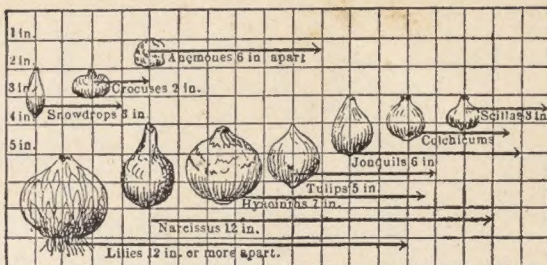 1 in.
2 in.
Anemones 6 in. apart
3 in.
Crocuses 2 in.
4 in.
Snowdrops 3 in.
Scillas 3 in.
Colchicums
5 in.
Jonquils 6 in
Tulips 5 in.
Hyacinths 7 in.
Narcissus 12 in.
Lilies 12 in. or more apart.